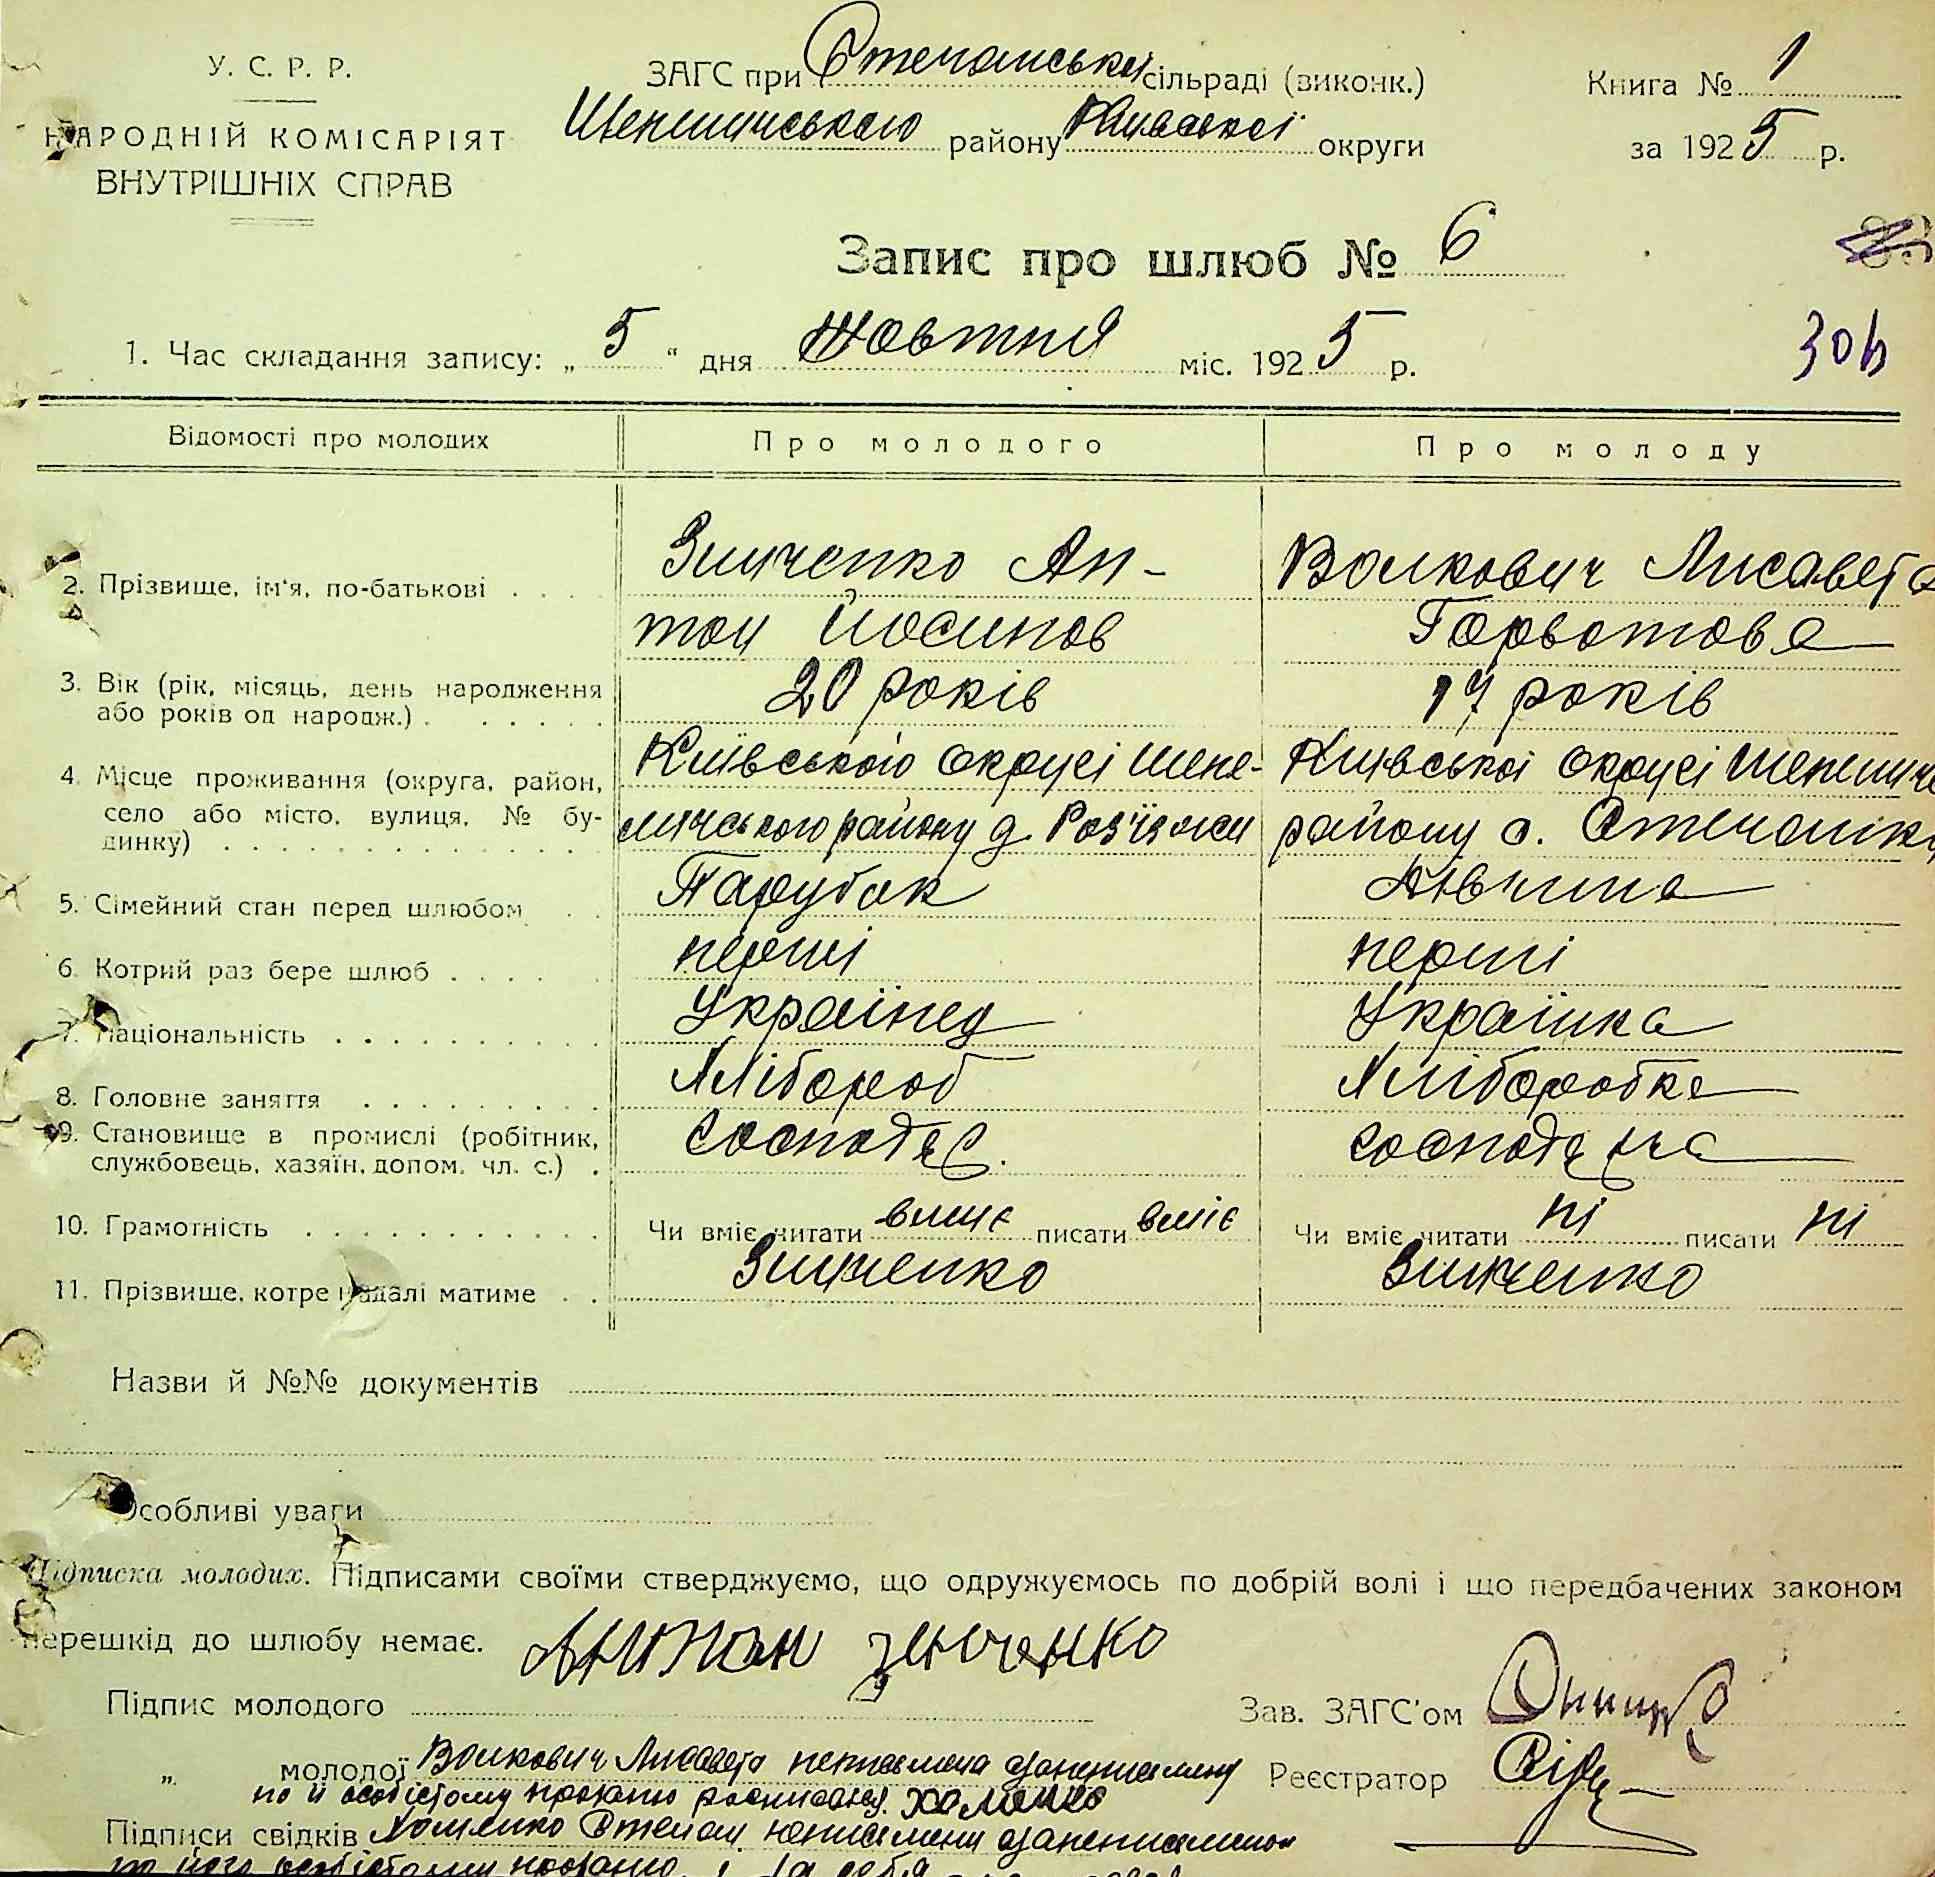 У. С. Р. Р.
НАРОДНІЙ КОМІСАРІЯТ
ВНУТРІШНІХ СПРАВ
ЗАГС при сільраді (виконк.)
району Київської округи
Книга № 1
за 1925 р.
Запис про шлюб № 6
1. Час складання запису: „ 5 “ дня Жовтня міс. 1925 р.
Відомості про молодих
Про молодого
Про молоду
2. Прізвище, ім'я, по-батькові
Зинченко Ан-
тон Йосипов
Волкович Лисавета
3. Вік (рік, місяць, день народження
або років од народж.)
20 років
17 років
4. Місце проживання (округа, район,
село або місто, вулиця, № бу-
динку)
Київського округі
району
Київської округі
району с.
5. Сімейний стан перед шлюбом
Парубок
Дівчина
6. Котрий раз бере шлюб
перший
перші
7. Національність
Українец
Українка
8. Головне заняття
Хлібороб
Хліборобка
9. Становище в промислі (робітник,
службовець, хазяїн, допом. чл. с.)
10. Грамотність
Чи вміє читати вміє писати вміє
Чи вміє читати ні писати ні
11. Прізвище, котре надалі матиме
Зинченко
Зинченко
Назви й №№ документів
Особливі уваги
Підписка молодих. Підписами своїми стверджуємо, що одружуємось по добрій волі і що передбачених законом
перешкід до шлюбу немає.
Підпис молодого
Антон Зинченко
Зав. ЗАГС'ом
„ молодої Волкович Лисавета неписьмена
Реєстратор
по її особістому проханню росписався Хоменко
Підписи свідків Хоменко Степан